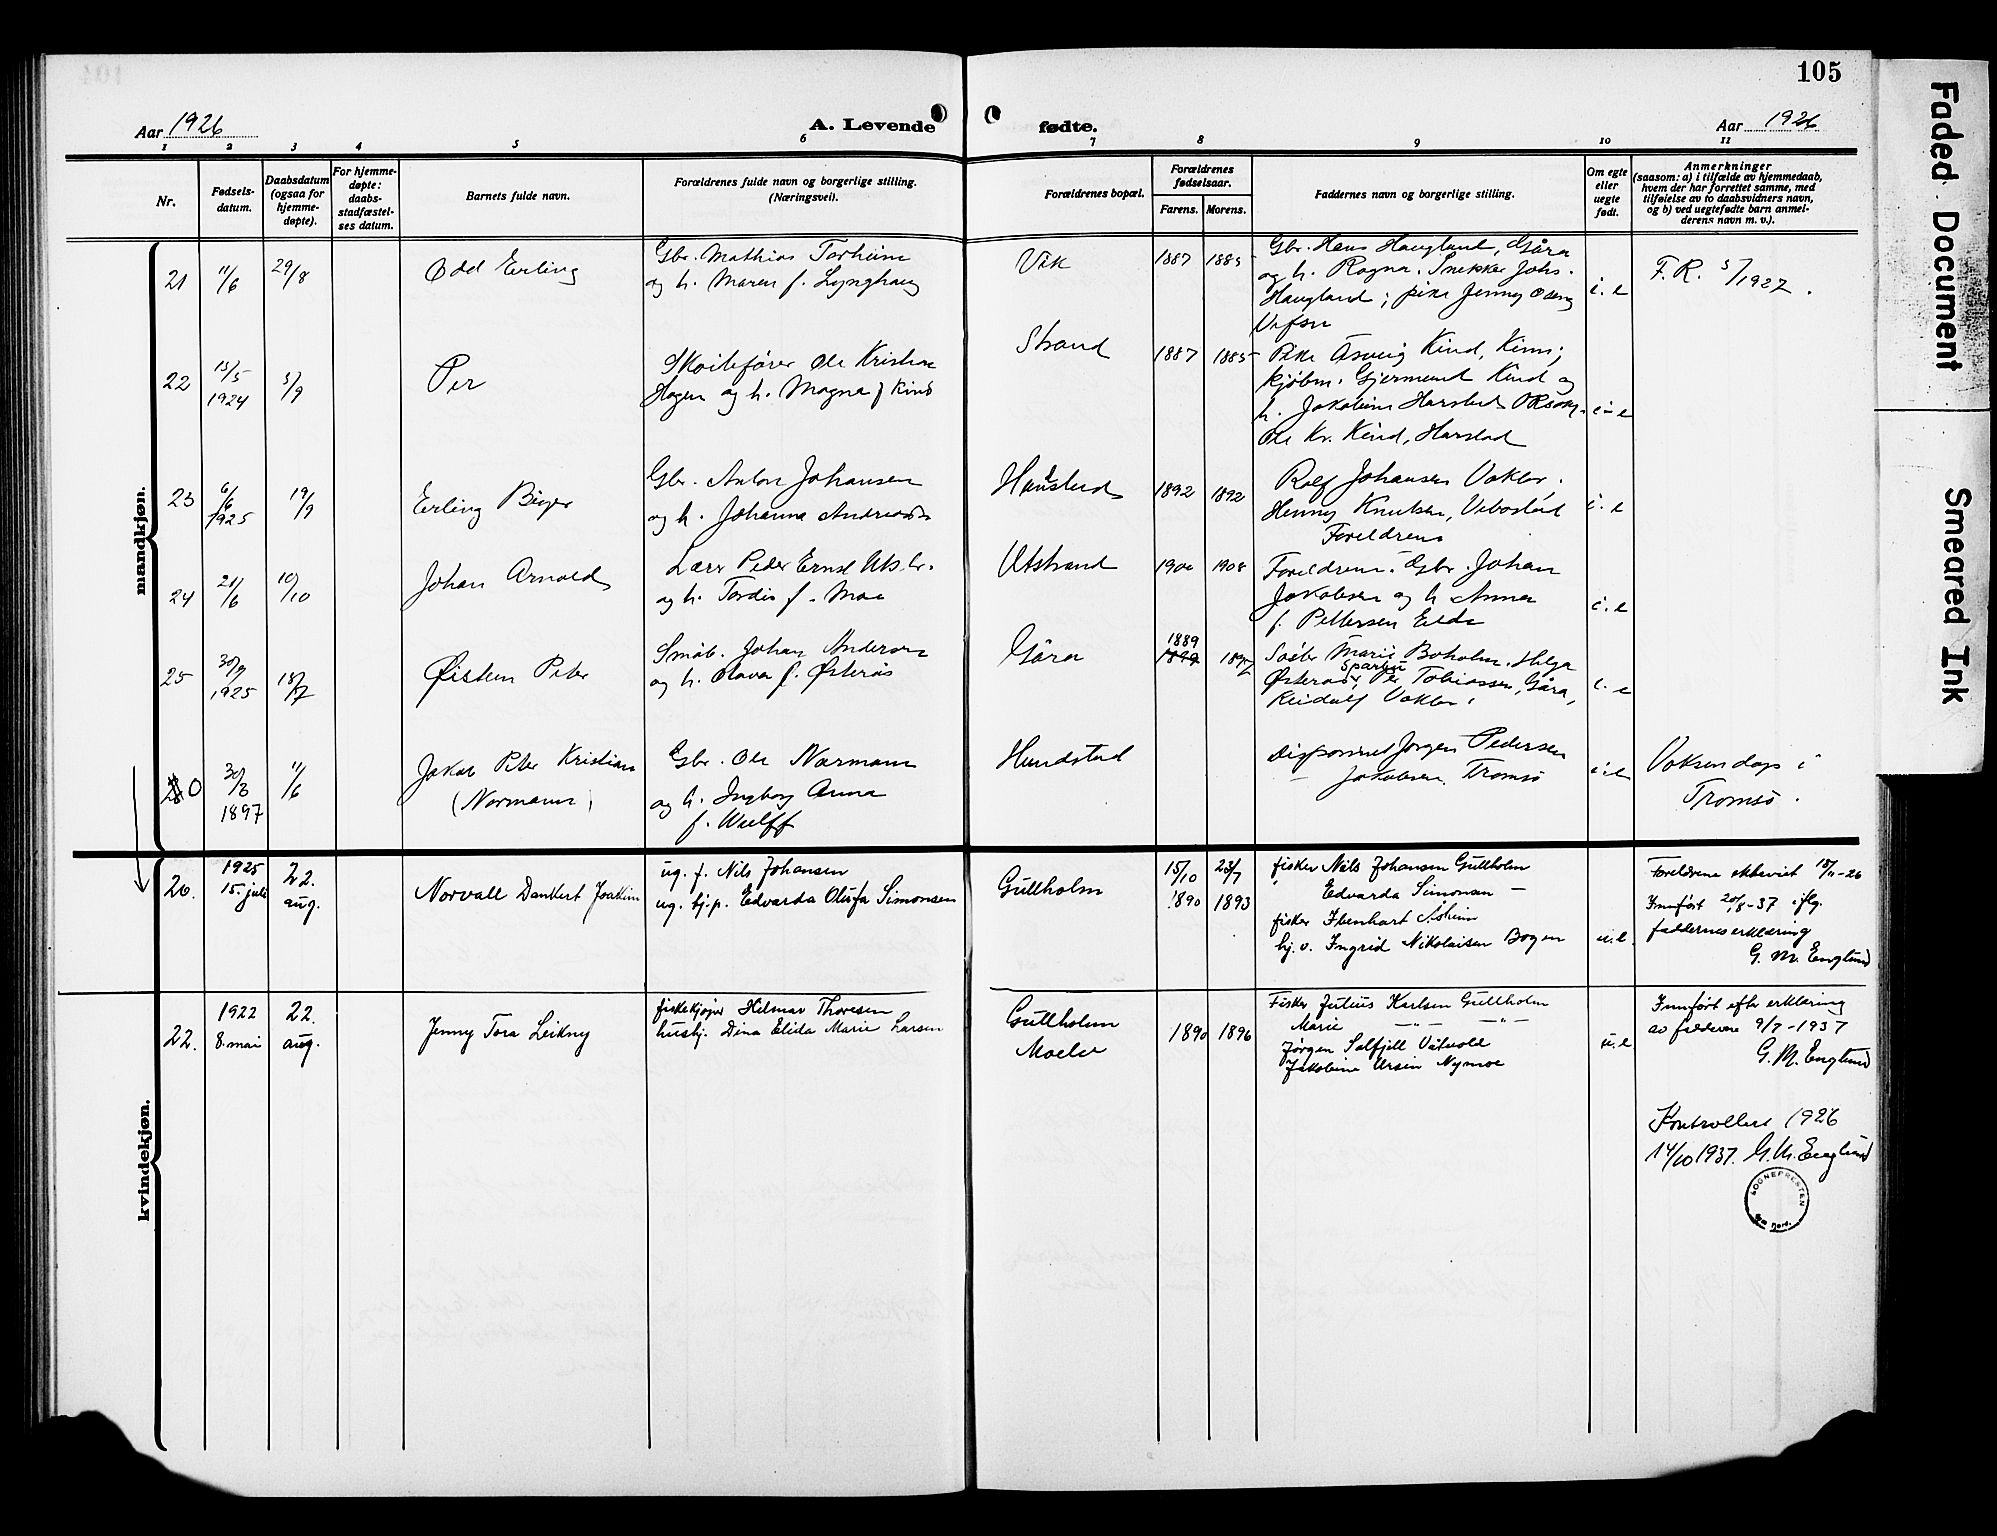 105
Aar 1926
A. Levende fødte.
Aar 1926
1 2 3 4 5 6 7 8 9 10 11
Nr.
Fødsels-
datum.
Daabsdatum
(ogsaa for
hjemme-
døpte).
For hjemme-
døpte:
daabs-
stadfæstel-
ses datum.
Barnets fulde navn.
Forældrenes fulde navn og borgerlige stilling.
(Næringsvei).
Forældrenes bopæl.
Forældrenes
fødselsaar.
Farens. Morens.
Faddernes navn og borgerlige stilling.
Om egte
eller
uegte
født.
Anmerkninger
(saasom: a) i tilfælde av hjemmedaab,
hvem der har forrettet samme, med
tilføielse av to daabsvidners navn,
og b) ved uegtefødte barn anmel-
derens navn m. v.).
mandkjøn.
21
11/6
29/8
Odd Erling
Gbr. Mathias Torheim
og h. Maren f. Lynghaug
Vik
1887 1885
Gbr. Hans Haugland, Gåra
og h. Ragna. Snekker Johs.
Haugland; pike Jenny
i. e
F. R. 5/1927.
22
15/5
1924
5/9
Per
Skoitefører Ole Kristian
Hagen og h. Magna f Kind
Strand
1887 1885
Pike Kind,
kjøbm. Gjermund Kind og
h. Jakobine Harstad
Ole Kr. Kind, Harstad
i - e
23
6/6
1925
19/9
Erling Birger
Gbr. Anton Johansen
og h. Johanna
1892 1892
Rolf Johansen
Henny Knutsen, Vebostad
Foreldrene
i. e
24
21/6
10/10
Johan Arnold
Lærer Peder Ernst
og h. Tordis f. Moe
Utstrand
1908
Foreldrene. Gbr. Johan
Jakobsen og h Anna
f. Pettersen
i. e
25
30/9
1925
18/7
Øistein Peter
Småb. Johan Andersen
og h. Olava f. Østerås
Gåra
1889
Marie Boholm. Helga
Østerås, Sparbu Per Tobiassen, Gåra,
i. e
0
30/3
1897
11/6
Jakob Peter Kristian
(Normann)
Gbr. Ole Normann
og h. Ingborg Anna
f. Wulff
Hundstad
Disponent Jørgen Pedersen
— Jakobsen, Tromsø
i. e
Voksendåp i
Tromsø.
26.
1925
15. juli
22.
aug.
Norvall Dankert Joakim
ug. f. Nils Johansen
ug. hj.p. Edvarda Olufa Simonsen
Gullholm
15/10 23/7
1890 1893
fisker Nils Johansen Gullholm
" Edvarda Simonsen —
fisker Ebenhart
hj. v. Ingrid Nikolaisen Bogen
u. e.
Foreldrene ektevict 18/11-26
Innført 20/8-37 iflg.
faddernes erklæring
G. M. Englund
kvindekjøn.
22.
1922
8. mai
22.
aug.
Jenny Tora Leikny
fiskekjøper Hilmar Thoresen
hushj. Dina Elida Marie Larsen
Gullholm
Moelv
1890 1896
Fisker Julius Karlsen Gullholm
Marie —"— —"—
Jørgen Solfjell Våtvoll
Jakobine Ursin Nymoe
u. e
Innført efter erklæring
av faddere 9/7-1937
G. M. Englund
Kontrollert 1926
14/10 1937. G. M. Englund
SOGNEPRESTEN
Faded Document
Smeared Ink